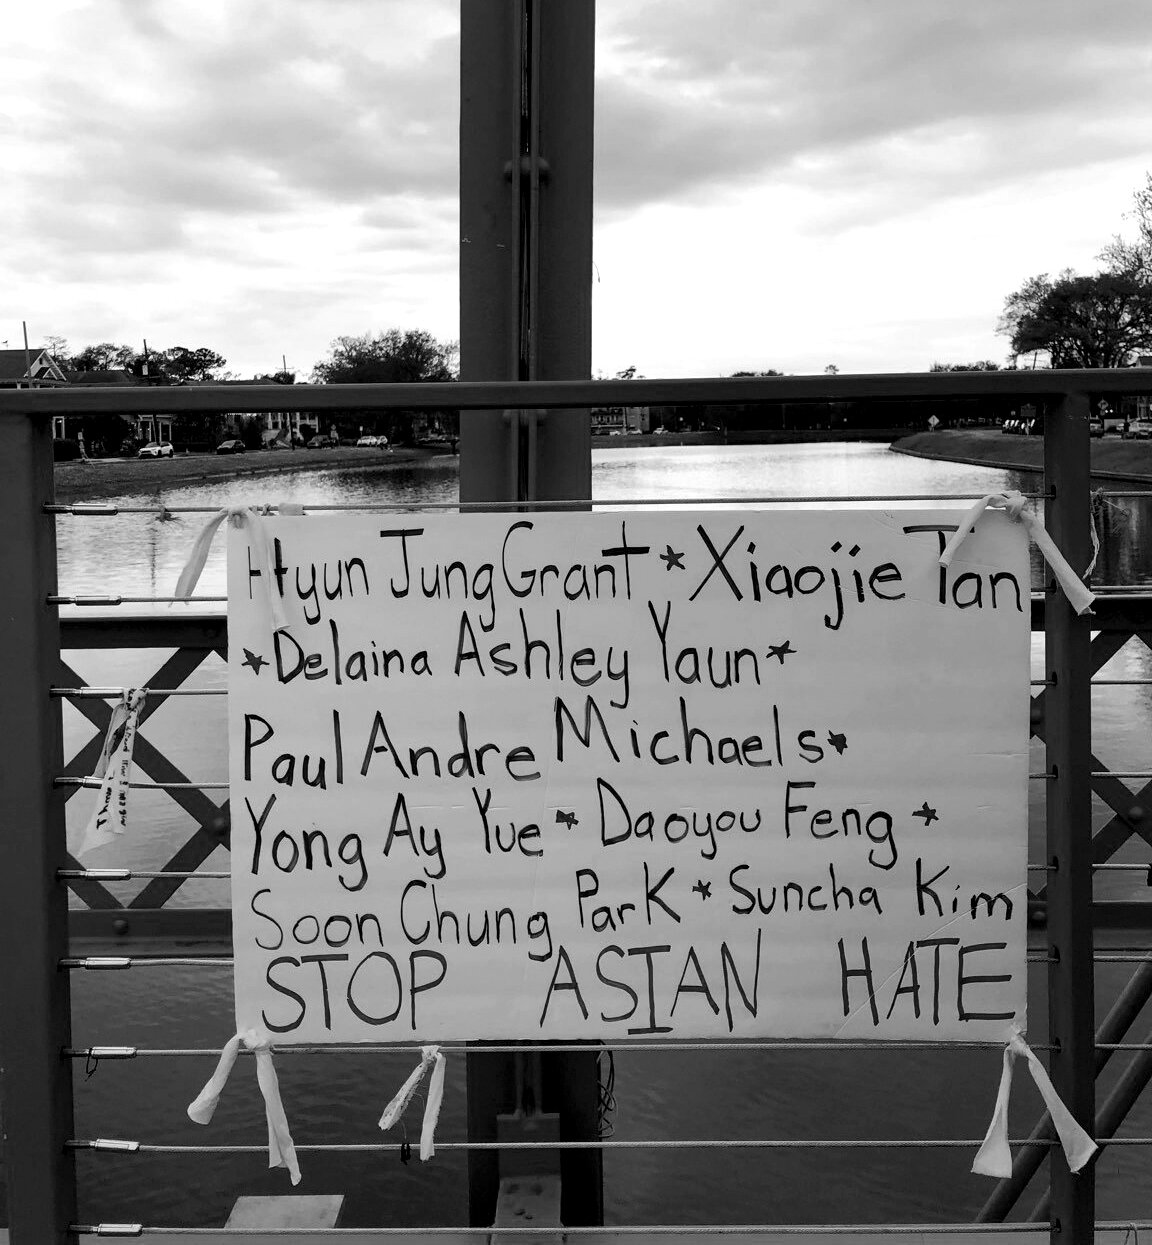 Hyun Jung Grant ★ Xiaojie Tan
★ Delaina Ashley Yaun ★
Paul Andre Michaels ★
Yong Ay Yue ★ Daoyou Feng ★
Soon Chung Park ★ Suncha Kim
STOP ASIAN HATE